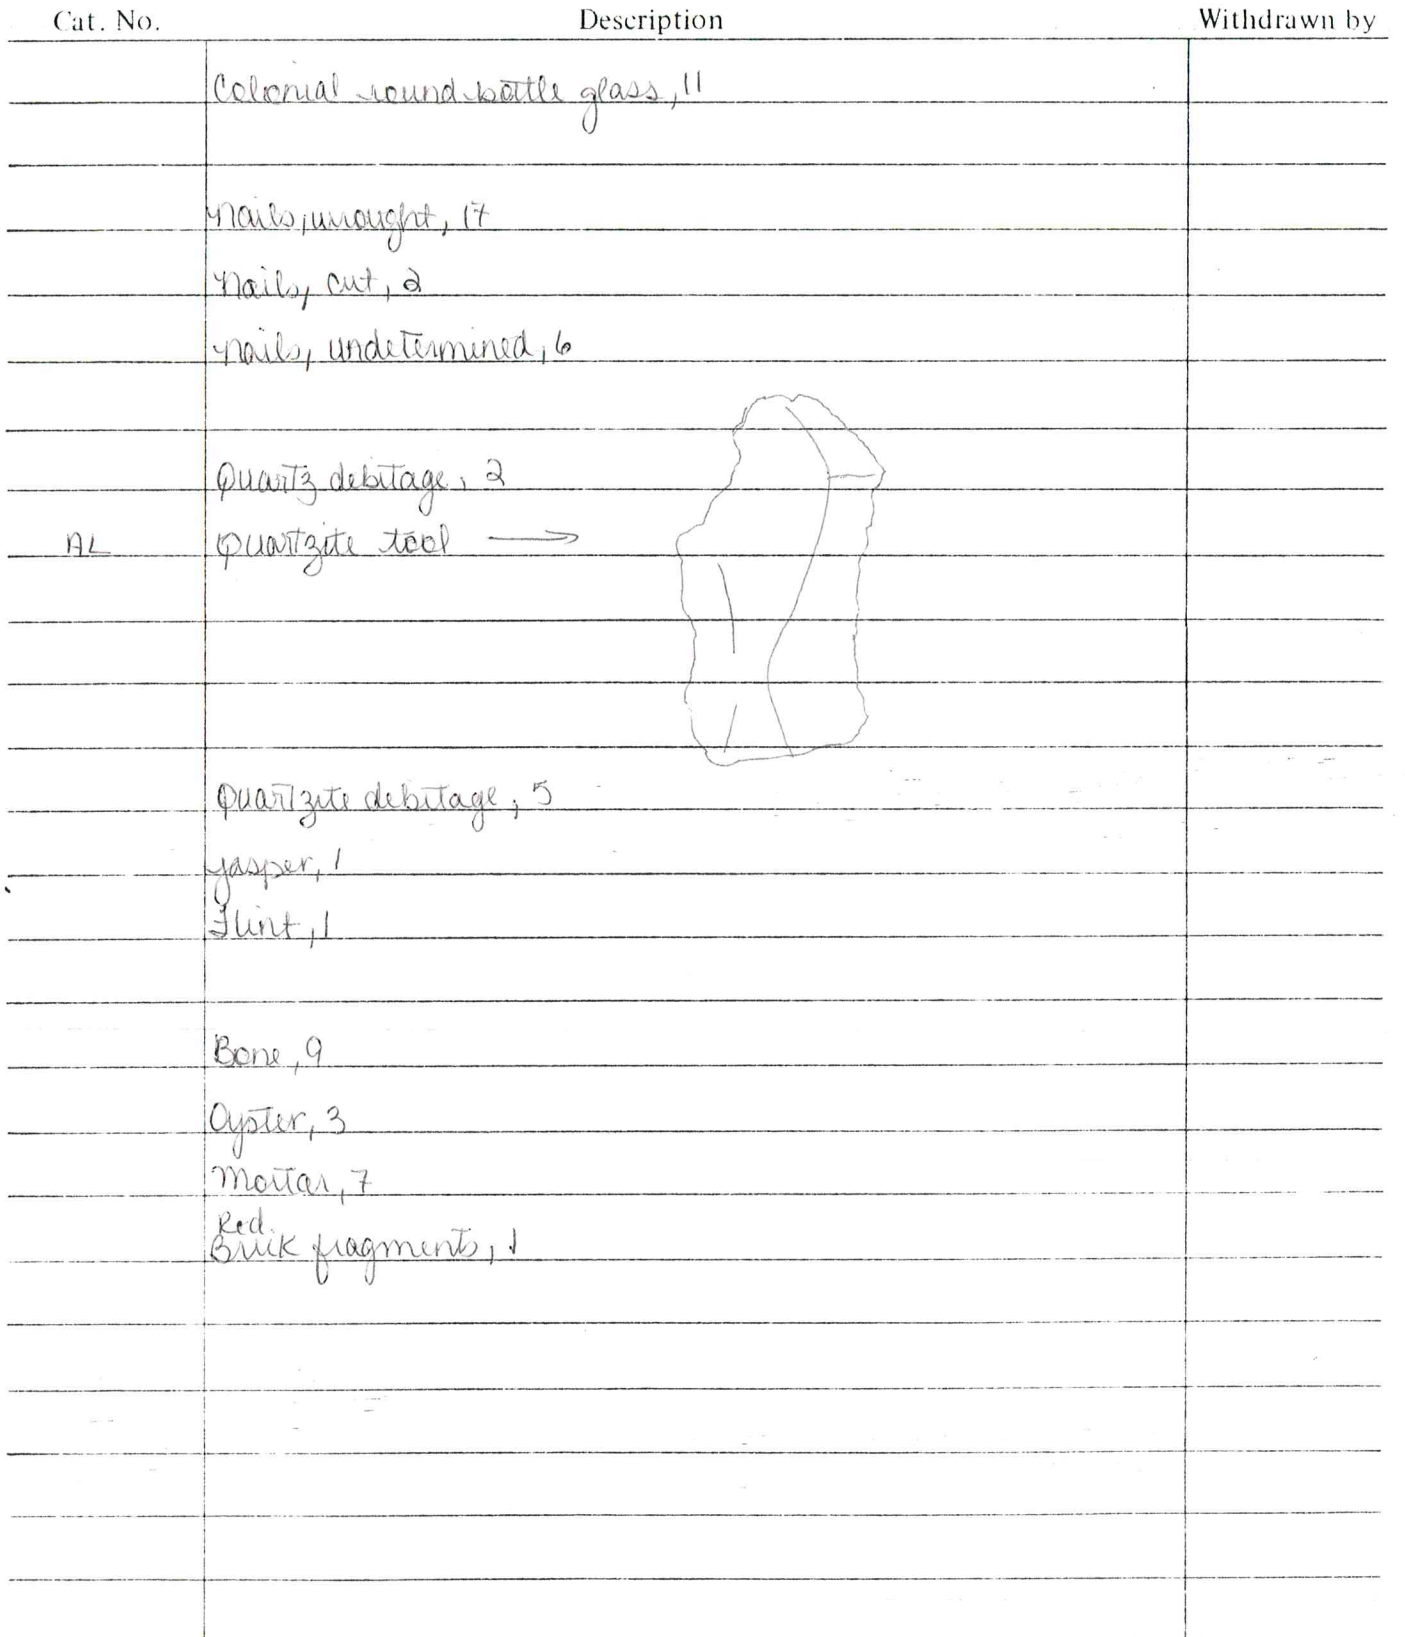 Cat. No. Description Withdrawn by
Colonial round bottle glass, 11
Nails, wrought, 17
Nails, cut, 2
Nails, undetermined, 6
Quartz debitage, 2
AL Quartzite tool →
Quartzite debitage, 5
Jasper, 1
Flint, 1
Bone, 9
Oyster, 3
Mortar, 7
Red
Brick fragments, 1